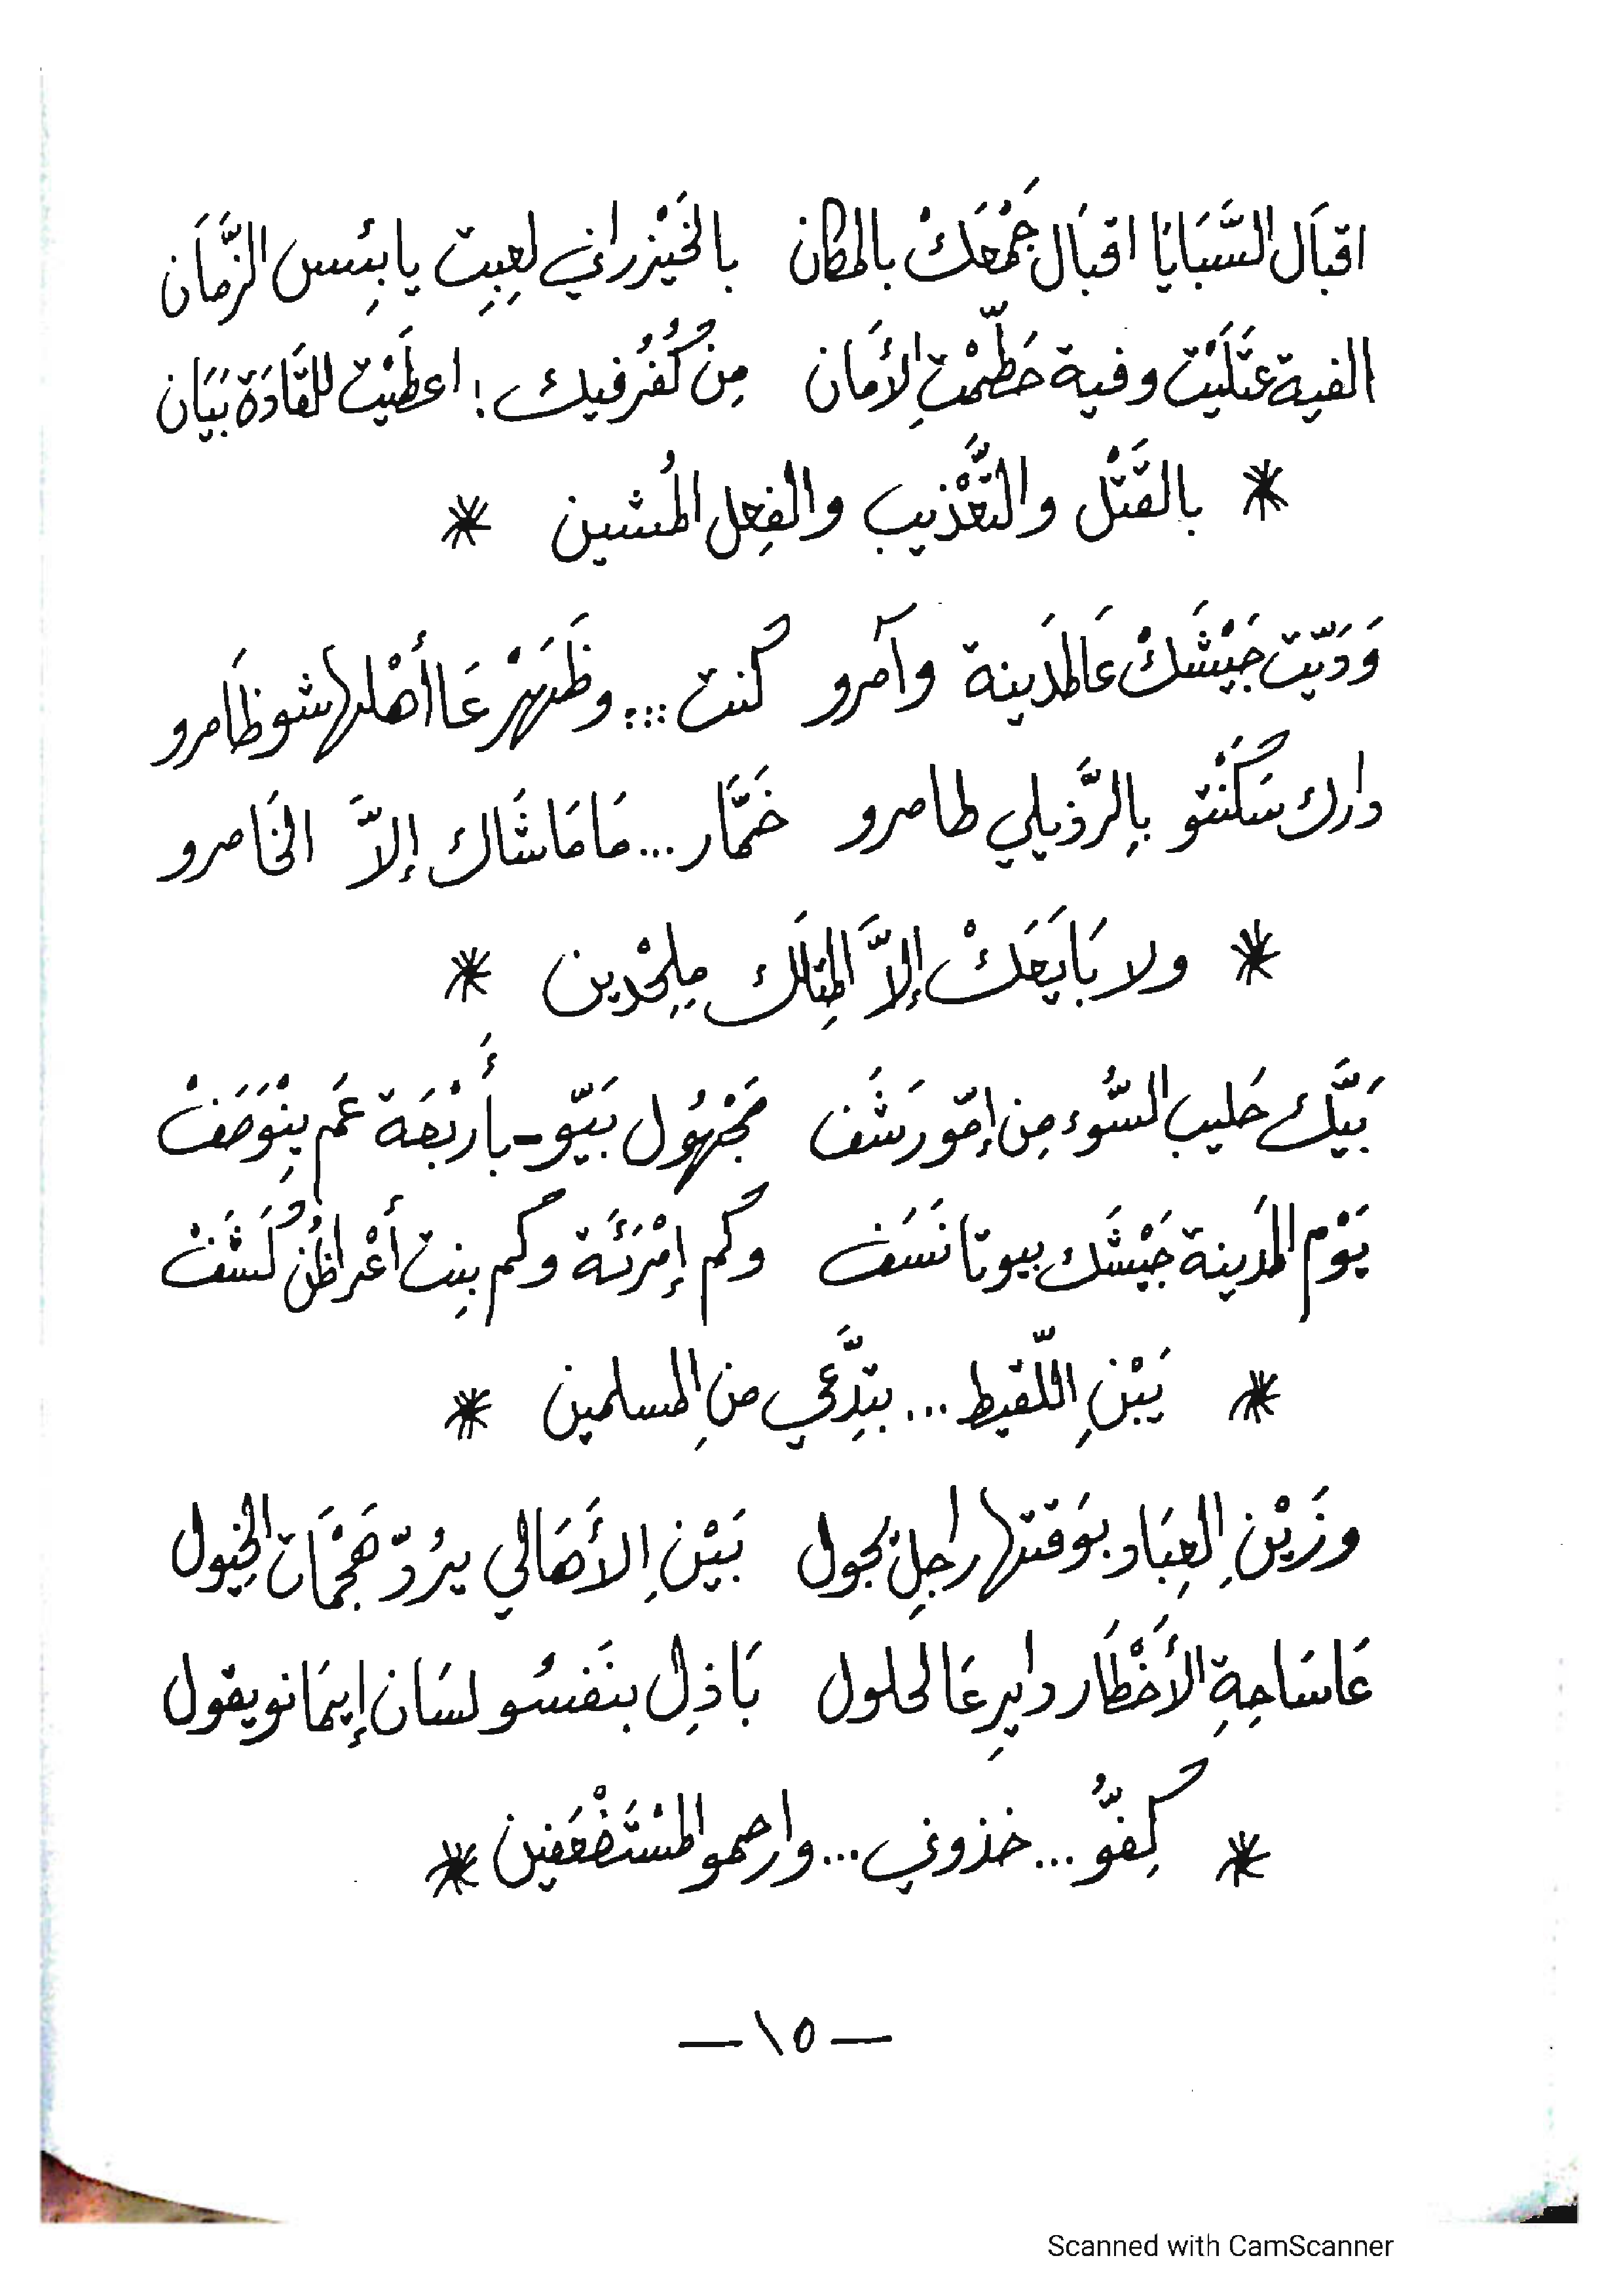 اقبَال السَّبَايَا اقبَال جَمْعَكْ بالمكان بالخَيْزراني لعِبِت يا بِئِس الزَّمَان
الفية عتَلَيْت وفية حَطَّمْتِ الأَمان مِن كُفُر فيك: اعطَيْت للقَادَة بَيَان
* بالقَتْل والتَّعْذيب والفِعل المُشين *
وَدَيّت جَيْشَكْ عَالمَدينة وآمرو كنت ... وظَهَرْ عَا أَهْلها شو ظَامرو
دارك سَكَنْتو بِالرَّذيلي طامرو خَمَّار ... مَا مَاشَاك إلاَّ الخَاصرو
* ولا بَايَعَكْ إلاَّ المِتلَك مِلِحْدين *
بَيَّك حَليب السُّوء مِن إمّو رَشَف مَجْهُول بَيّو - بأَرْبَعَة عَم يِنْوَصَفْ
يَوْم المَدينة جَيْشَك بيوتا نَسَف وكم إمْرَئَة وكم بِنت أَعْراظُن كَشَفْ
* يَبْنِ اللّقيط ... بتِدَّعي منِ المسلمين *
وزَيْنِ العِبَاد بوَقتها راجِل بجول بَيْنِ الأَهَالي يرُدّ هَجْمَات الخِيول
عَاسَاحِةِ الأَخْطَار دايرِ عَالحلول بَاذِل بنَفسُو لسَان إيمَانو يقول
* كِفُّو ... خذوني ... وارحمو المسْتَضْعَفين *
— ١٥ —
Scanned with CamScanner